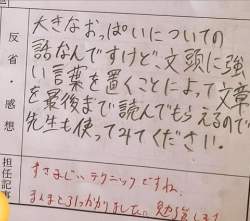 大きなおっぱいについての
話なんですけど、文頭に強
い言葉を置くことによって文章
を最後まで読んでもらえるので
先生も使ってみてください。
反省・感想
すさまじいテクニックですね。
まんまと引っかかりました。勉強
担任記事